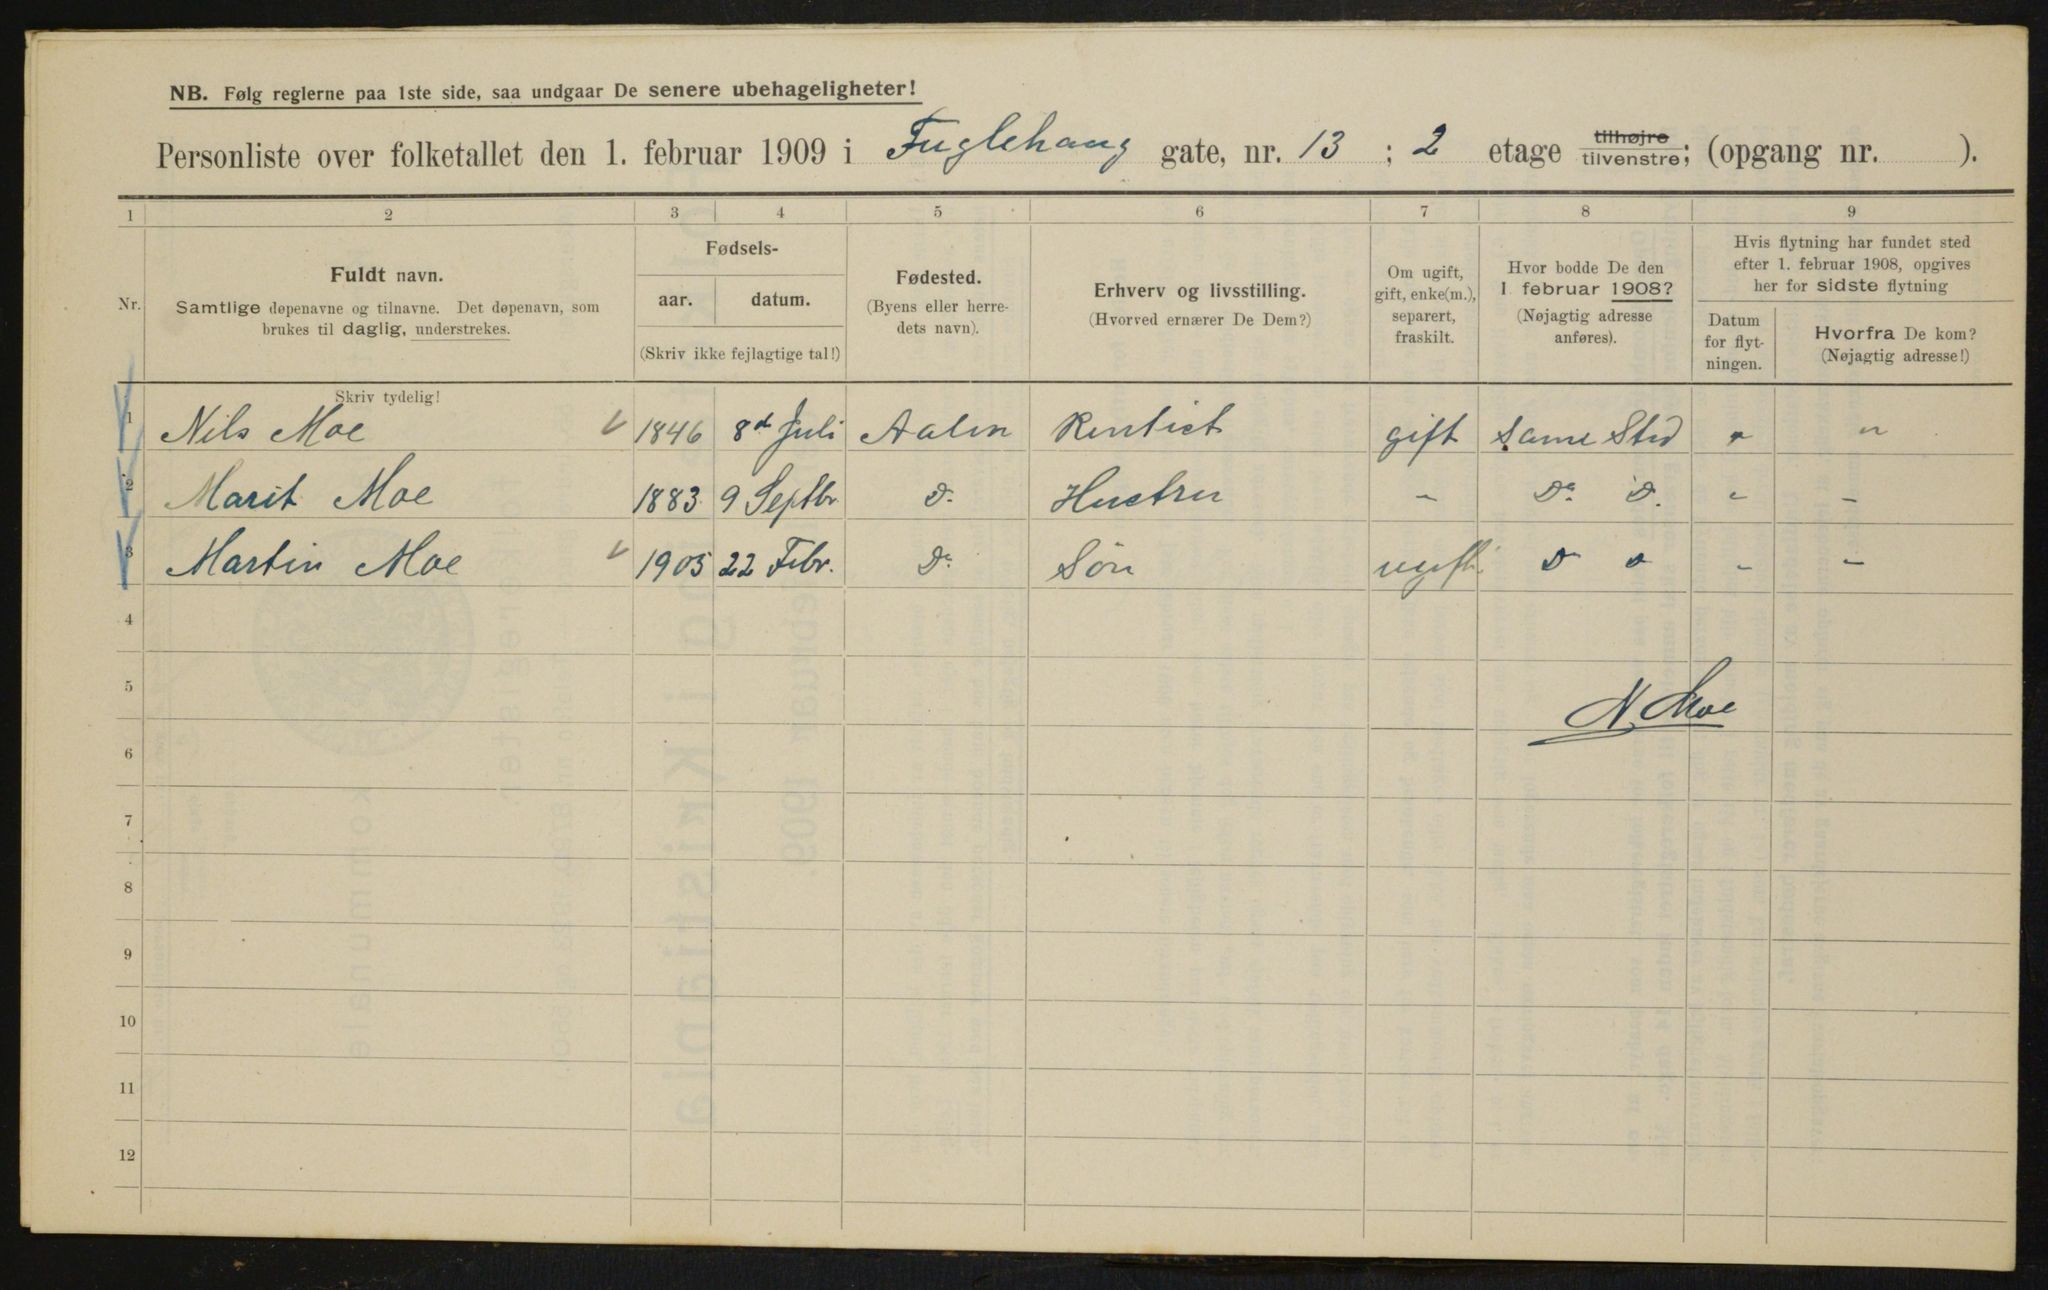 NB. Følg reglerne paa 1ste side, saa undgaar De senere ubehageligheter!
Personliste over folketallet den 1. februar 1909 i Fuglehaug gate, nr. 13 ; 2 etage tilhøjre tilvenstre; (opgang nr. ).
1 2 3 4 5 6 7 8 9
Nr.
Fuldt navn.
Samtlige døpenavne og tilnavne. Det døpenavn, som
brukes til daglig, understrekes.
Skriv tydelig!
Fødsels-
aar. datum.
(Skriv ikke fejlagtige tal!)
Fødested.
(Byens eller herre-
dets navn).
Erhverv og livsstilling.
(Hvorved ernærer De Dem?)
Om ugift,
gift, enke(m.),
separert,
fraskilt.
Hvor bodde De den
1 februar 1908?
(Nøjagtig adresse
anføres).
Hvis flytning har fundet sted
efter 1. februar 1908, opgives
her for sidste flytning
Datum
for flyt-
ningen.
Hvorfra De kom?
(Nøjagtig adresse!)
1 Nils Moe 1846 8d Juli Aalen Rentict gift same Sted " "
2 Marit Moe 1883 9 Septbr. Do. Hustru " Do. Do. " "
3 Martin Moe 1905 22 Febr. Do. Søn ugift. Do Do " "
4
5
N Moe
6
7
8
9
10
11
12